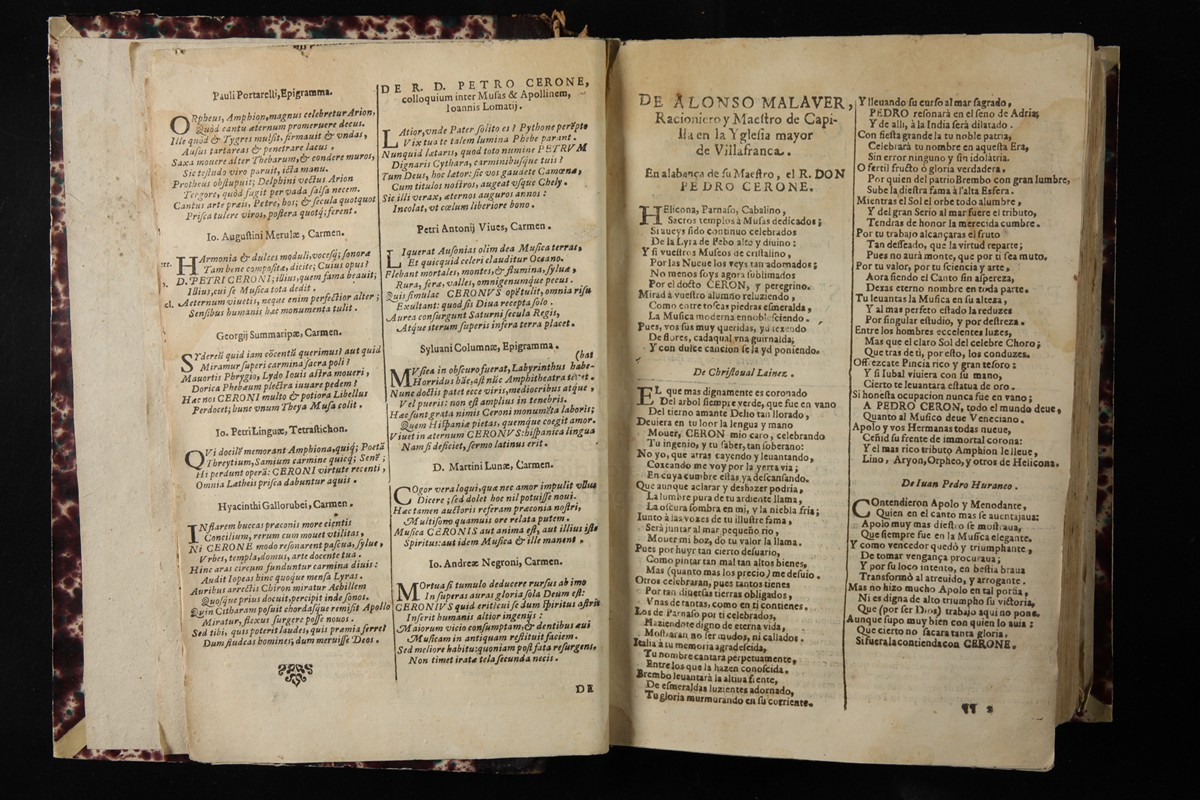 Pauli Portarelli, Epigramma.
ORpheus, Amphion, magnus celebretur Arion,
Quòd cantu æternum promeruere decus.
Ille quod & Tygres mulsit, firmauit & vndas,
Ausus tartareas & penetrare lacus.
Saxa mouere alter Thebarum, & condere muros,
Sic testudo viro paruit, icta manu.
Protheus obstupuit; Delphini vectus Arion
Tergore, quòd fugit per vada salsa necem.
Cantus arte præis, Petre, hos; & secula quotquot
Prisca tulere viros, postera quotq; ferent.
Io. Augustini Merulæ, Carmen.
HArmonia & dulces moduli, vocesq; sonora
Tam bene composita, dicite; Cuius opus?
D. PETRI CERONI; illius, quem fama beauit;
Illius, cui se Musica tota dedit.
Aeternum viuetis, neque enim perfectior alter;
Sensibus humanis hac monumenta tulit.
Georgij Summaripæ, Carmen.
SYdereū quid iam cōcentū querimus? aut quid
Miramur superi carmina sacra poli?
Mauortis Phrygio, Lydo Iouis altra moueri,
Dorica Phebæum plectra iuuare pedem?
Hæc nos CERONI multo & potiora Libellus
Perdocet; hunc vnum Theya Musa colit.
Io. Petri Linguæ, Tetrastichon.
QVi docilē memorant Amphiona, quiq; Poetā
Threytium, Samium carmine quicq; Senē;
Hi perdunt operā: CERONI virtute recenti,
Omnia Latheis prisca dabuntur aquis.
Hyacinthi Gallorubei, Carmen.
INflarem buccas præconis more cientis
Concilium, rerum cum mouet vtilitas,
Ni CERONE modo resonarent pascua, sylue,
Vrbes, templa, domus, arte docente tua.
Hinc aras circum funduntur carmina diuis:
Audit Iopeas hinc quoque mensa Lyras.
Auribus arrectis Chiron miratur Achillem
Quosque prius docuit, percipit inde sonos.
Quin Citharam posuit chordasque remisit Apollo
Miratur, flexus surgere posse nouos.
Sed tibi, quis poterit laudes, quis præmia ferre?
Dum studeas homines, dum meruisse Deos.
DE R. D. PETRO CERONE,
colloquium inter Musas & Apollinem,
Ioannis Lomatij.
LAtior, vnde Pater solito es? Pythone perēpto
Vix tua te talem lumina Phebe parant.
Nunquid lataris, quod toto numine PETRVM
Dignaris Cythara, carminibusque tuis?
Tum Deus, hoc lætor: sic vos gaudete Camœnæ,
Cum titulos nostros, augeat vsque Chely.
Sic illi verax, æternos auguros annos:
Incolat, vt cœlum liberiore bono.
Petri Antonij Viues, Carmen.
LIquerat Ausonias olim dea Musica terras,
Et quicquid celeri clauditur Oceano.
Flebant mortales, montes, & flumina, syluæ,
Rura, feræ, valles, omnigenumque pecus.
Quis simulac CERONVS opē tulit, omnia risu
Exultant: quod sis Diua recepta solo.
Aurea consurgunt Saturni secula Regis,
Atque iterum superis infera terra placet.
Syluani Columnæ, Epigramma.
(bat
MVsica in obscuro fuerat, Labyrinthus habe-
Horridus hāc, ast nūc Amphitheatra
Nunc doctis patet ecce viris, mediocribus atque,
Vel pueris: non est amplius in tenebris.
Hac sunt grata nimis Ceroni monumēta laboris;
Quem Hispania pietas, quemque coegit amor.
Viuet in æternum CERONVS: hispanica lingua
Nam si deficiet, sermo latinus erit.
D. Martini Lunæ, Carmen.
COgor vera loqui, quæ nec amor impulit vllus
Dicere; sed dolet hoc nil potuisse noui.
Hæc tamen auctoris referam præconia nostri,
Multisono quamuis ore relata putem.
Musica CERONIS aut anima est, aut illius iste
Spiritus: aut idem Musica & ille manent.
Io. Andreæ Negroni, Carmen.
MOrtua si tumulo deducere rursus ab imo
In superas auras gloria sola Deum est:
CERONIVS quid eritici se dum spiritus astris
Inserit humanis altior ingenijs:
Maiorum vicio consumptam, & dentibus æui
Musicam in antiquam restituit faciem.
Sed meliore habitu: quoniam post fata resurgens,
Non timet irata tela secunda necis.
DE
DE ALONSO MALAVER,
Racioniero y Maestro de Capi-
lla en la Yglesia mayor
de Villafranca.
En alabança de su Maestro, el R. DON
PEDRO CERONE.
HElicona, Parnaso, Cabalino,
Sacros templos à Musas dedicados;
Si aueys sido continuo celebrados
De la Lyra de Febo alto y diuino:
Y si vuestros Museos de cristalino,
Por las Nueue los veys tan adornados;
No menos soys agora sublimados
Por el docto CERON, y peregrino.
Mirad à vuestro alumno reluziendo,
Como entre toscas piedras esmeralda,
La Musica moderna ennobleciendo.
Pues, vos sus muy queridas, yd texendo
De flores, cadaqual vna guirnalda;
Y con dulce cancion se la yd poniendo.
De Christoual Lainez.
EL que mas dignamente es coronado
Del arbol siempre verde, que fue en vano
Del tierno amante Delio tan llorado,
Deuiera en tu loor la lengua y mano
Mouer, CERON mio caro, celebrando
Tu ingenio, y tu saber, tan soberano:
No yo, que atras cayendo y leuantando,
Coxeando me voy por la yerta via;
En cuya cumbre estas ya descansando.
Que aunque aclarar y deshazer podria,
La lumbre pura de tu ardiente llama,
La oscura sombra en mi, y la niebla fria;
Iunto à las vozes de tu illustre fama,
Será juntar al mar pequeño rio,
Mouer mi boz, do tu valor la llama.
Pues por huyr tan cierto desuario,
Como pintar tan mal tan altos bienes,
Mas (quanto mas los precio) me desuio.
Otros celebraran, pues tantos tienes
Por tan diuersas tierras obligados,
Vnas de tantas, como en ti contienes.
Los de Parnaso por ti celebrados,
Haziendote digno de eterna vida,
Mostraran no ser mudos, ni callados.
Italia à tu memoria agradescida,
Tu nombre cantará perpetuamente,
Entre los que la hazen conoscida.
Brembo leuantará la altiua frente,
De esmeraldas luzientes adornado,
Tu gloria murmurando en su corriente.
Y lleuando su curso al mar sagrado,
PEDRO resonará en el seno de Adria;
Y de alli, à la India será dilatado.
Con fiesta grande la tu noble patria,
Celebrará tu nombre en aquesta Era,
Sin error ninguno y sin idolàtria.
O fertil fructo ò gloria verdadera,
Por quien del patrio Brembo con gran lumbre,
Sube la diestra fama à l'alta Esfera.
Mientras el Sol el orbe todo alumbre,
Y del gran Serio al mar fuere el tributo,
Tendras de honor la merecida cumbre.
Por tu trabajo alcançaras el fruto
Tan desseado, que la virtud reparte;
Pues no aurá monte, que por ti sea muto.
Por tu valor, por tu sciencia y arte,
Aora siendo el Canto sin aspereza,
Dexas eterno nombre en toda parte.
Tu leuantas la Musica en su alteza,
Y al mas perfeto estado la reduzes
Por singular estudio, y por destreza.
Entre los hombres eccelentes luzes,
Mas que el claro Sol del celebre Choro;
Que tras de ti, por esto, los conduzes.
Offrezcate Pincia rico y gran tesoro:
Y si Iubal viuiera con su mano,
Cierto te leuantara estatua de oro.
Si honesta ocupacion nunca fue en vano;
A PEDRO CERON, todo el mundo deue,
Quanto al Musico deue Veneciano.
Apolo y vos Hermanas todas nueue,
Ceñid su frente de immortal corona:
Y el mas rico tributo Amphion le lleue,
Lino, Aryon, Orpheo, y otros de Helicona.
De Iuan Pedro Huranco.
COntendieron Apolo y Menodante,
Quien en el canto mas se auentajaua:
Apolo muy mas diestro se mostraua,
Que siempre fue en la Musica elegante.
Y como vencedor quedò y triumphante,
De tomar vengança procuraua;
Y por su loco intento, en bestia braua
Transformò al atreuido, y arrogante.
Mas no hizo mucho Apolo en tal porfia,
Ni es digna de alto triumpho su victoria,
Que (por ser Dios) trabajo aqui no pone.
Aunque supo muy bien con quien lo auia;
Que cierto no sacara tanta gloria,
Si fuera la contienda con CERONE.
¶¶ 2